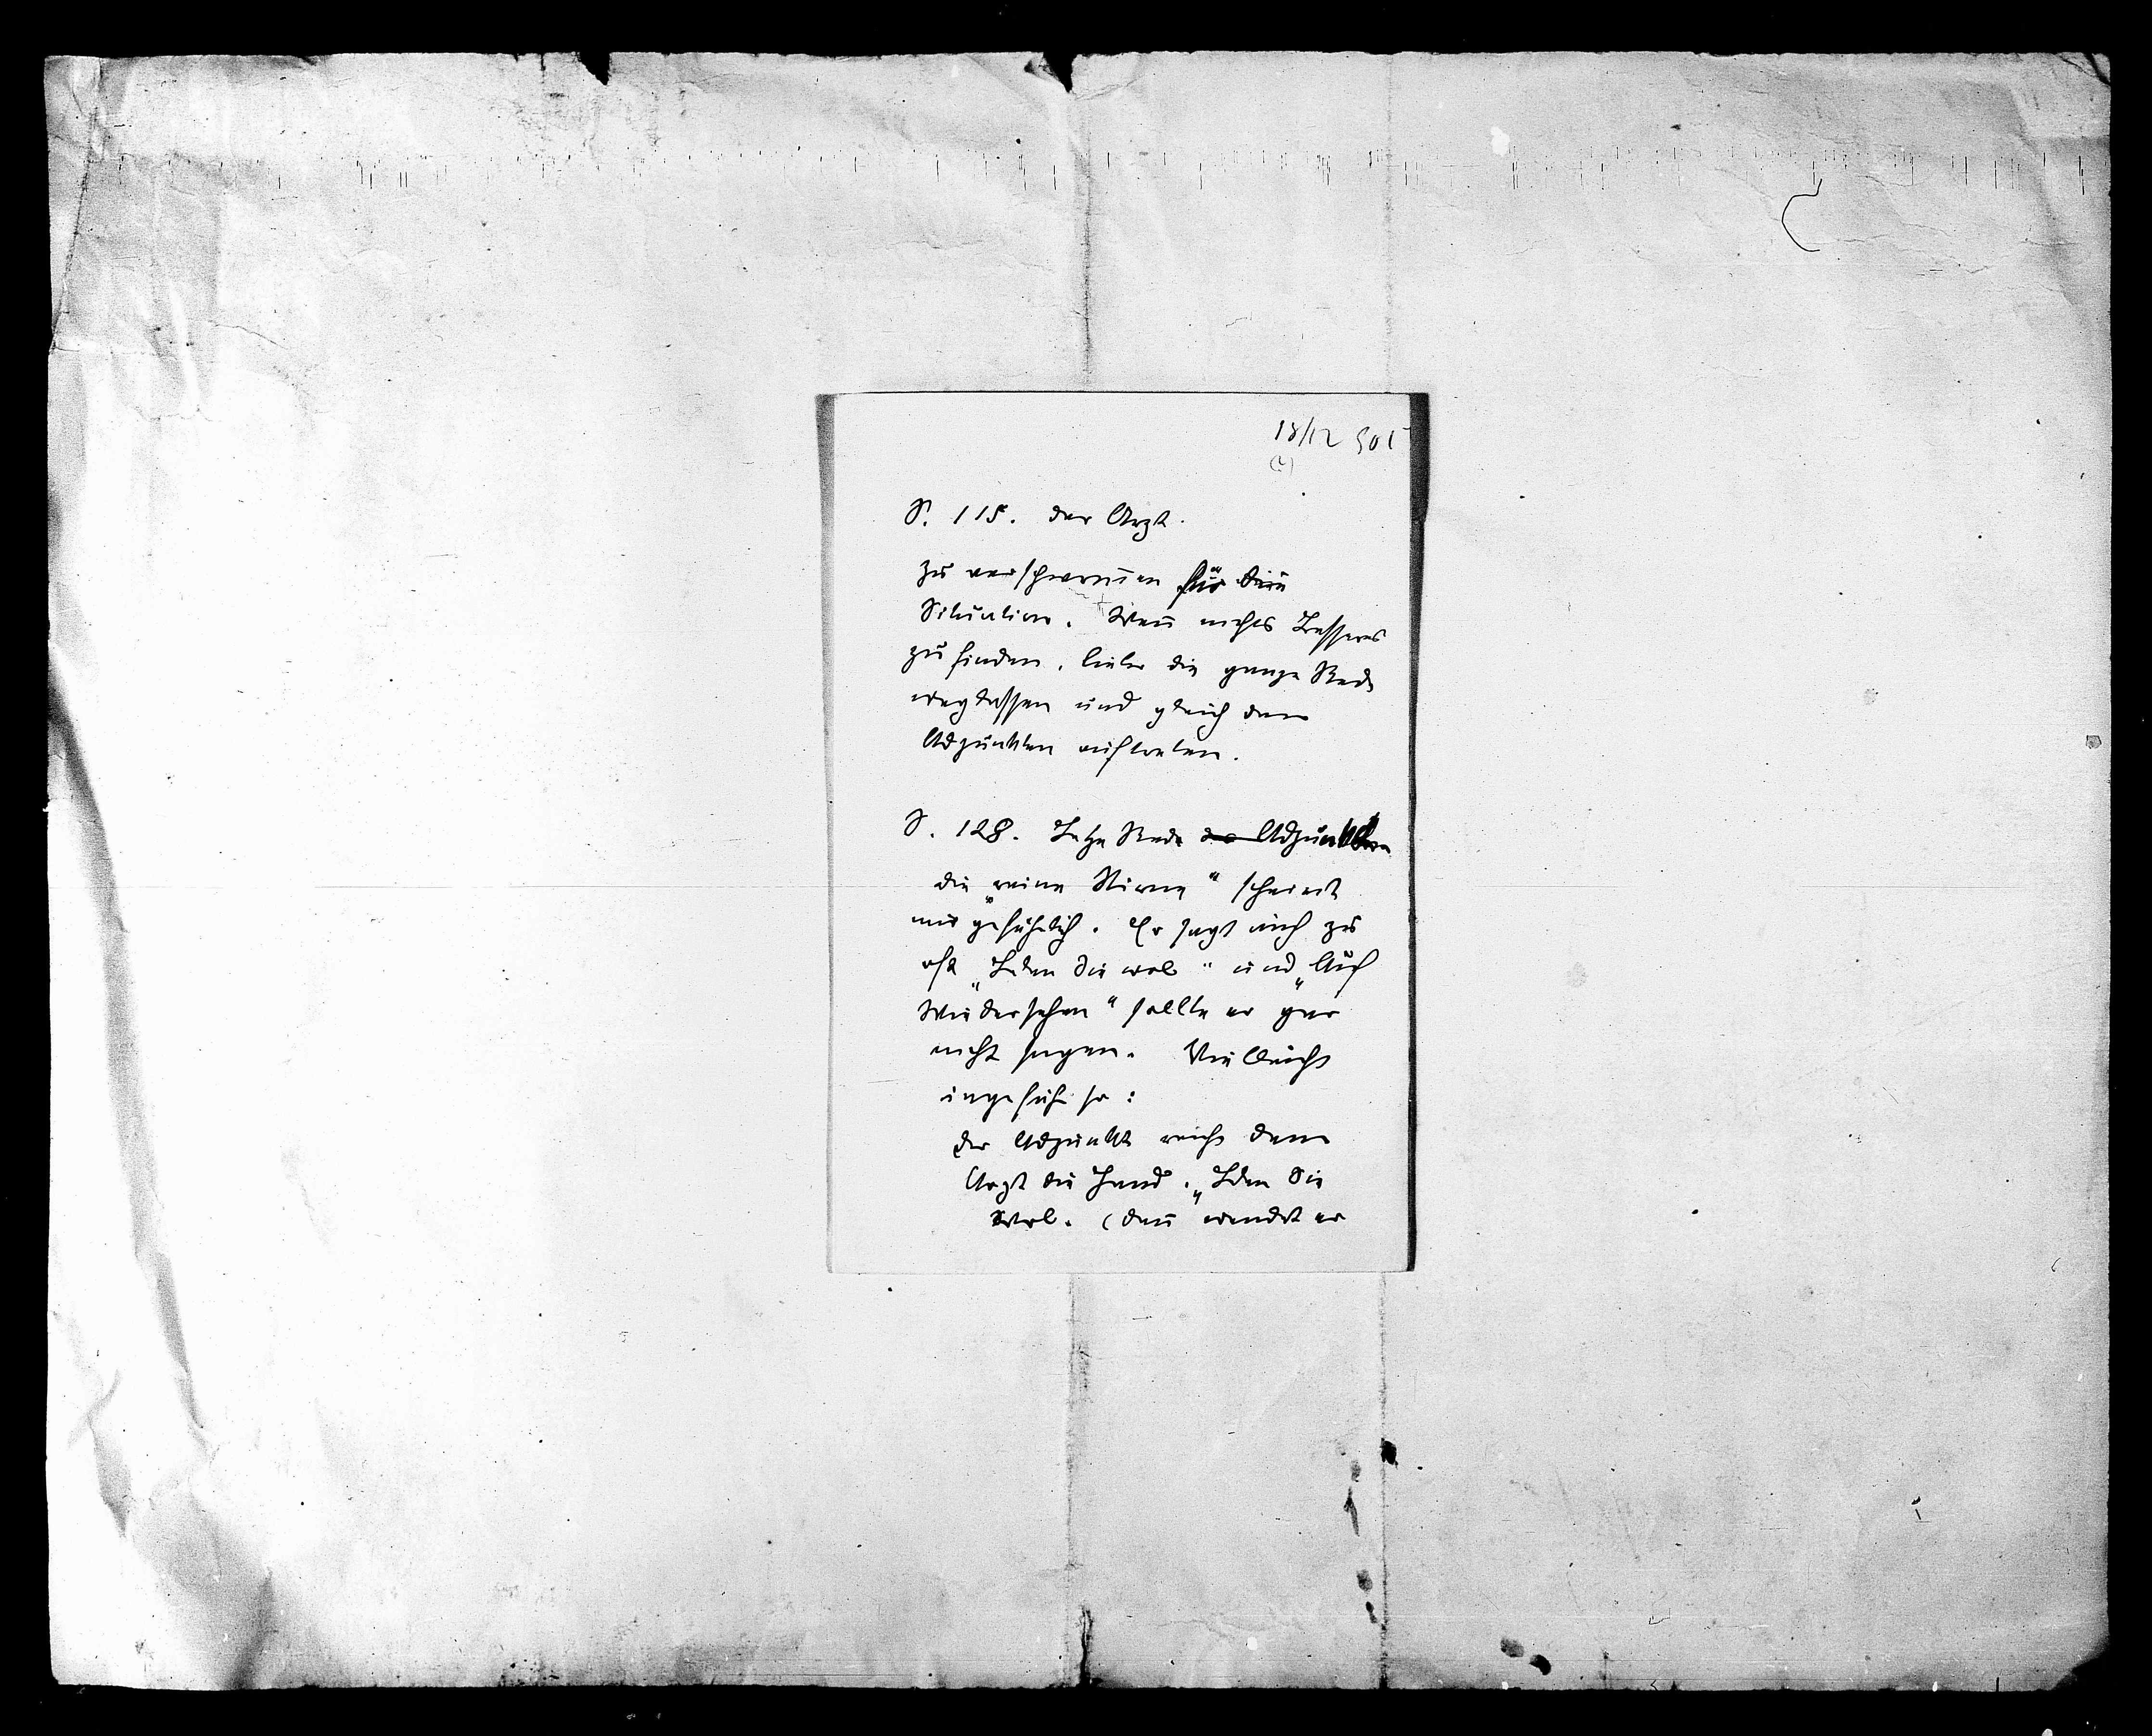 18/12 901
(2)
S. 115. der Arzt.
zu verschwommen für die
Situation. Wenn nichts Besseres
zu finden, lieber die ganze Rede
weglassen und gleich den
Adjunkten auftreten.
S. 128. Letzte Rede des Adjunkten
die „reine Stirne“ scheint
mir gefährlich. Er sagt auch zu
oft „Leben Sie wol“ und „Auf
Wiedersehen“ sollte er gar
nicht sagen. Vielleicht
ungefähr so:
Der Adjunkt reicht dem
Arzt die Hand. „Leben Sie
Wol. (dann wendet er